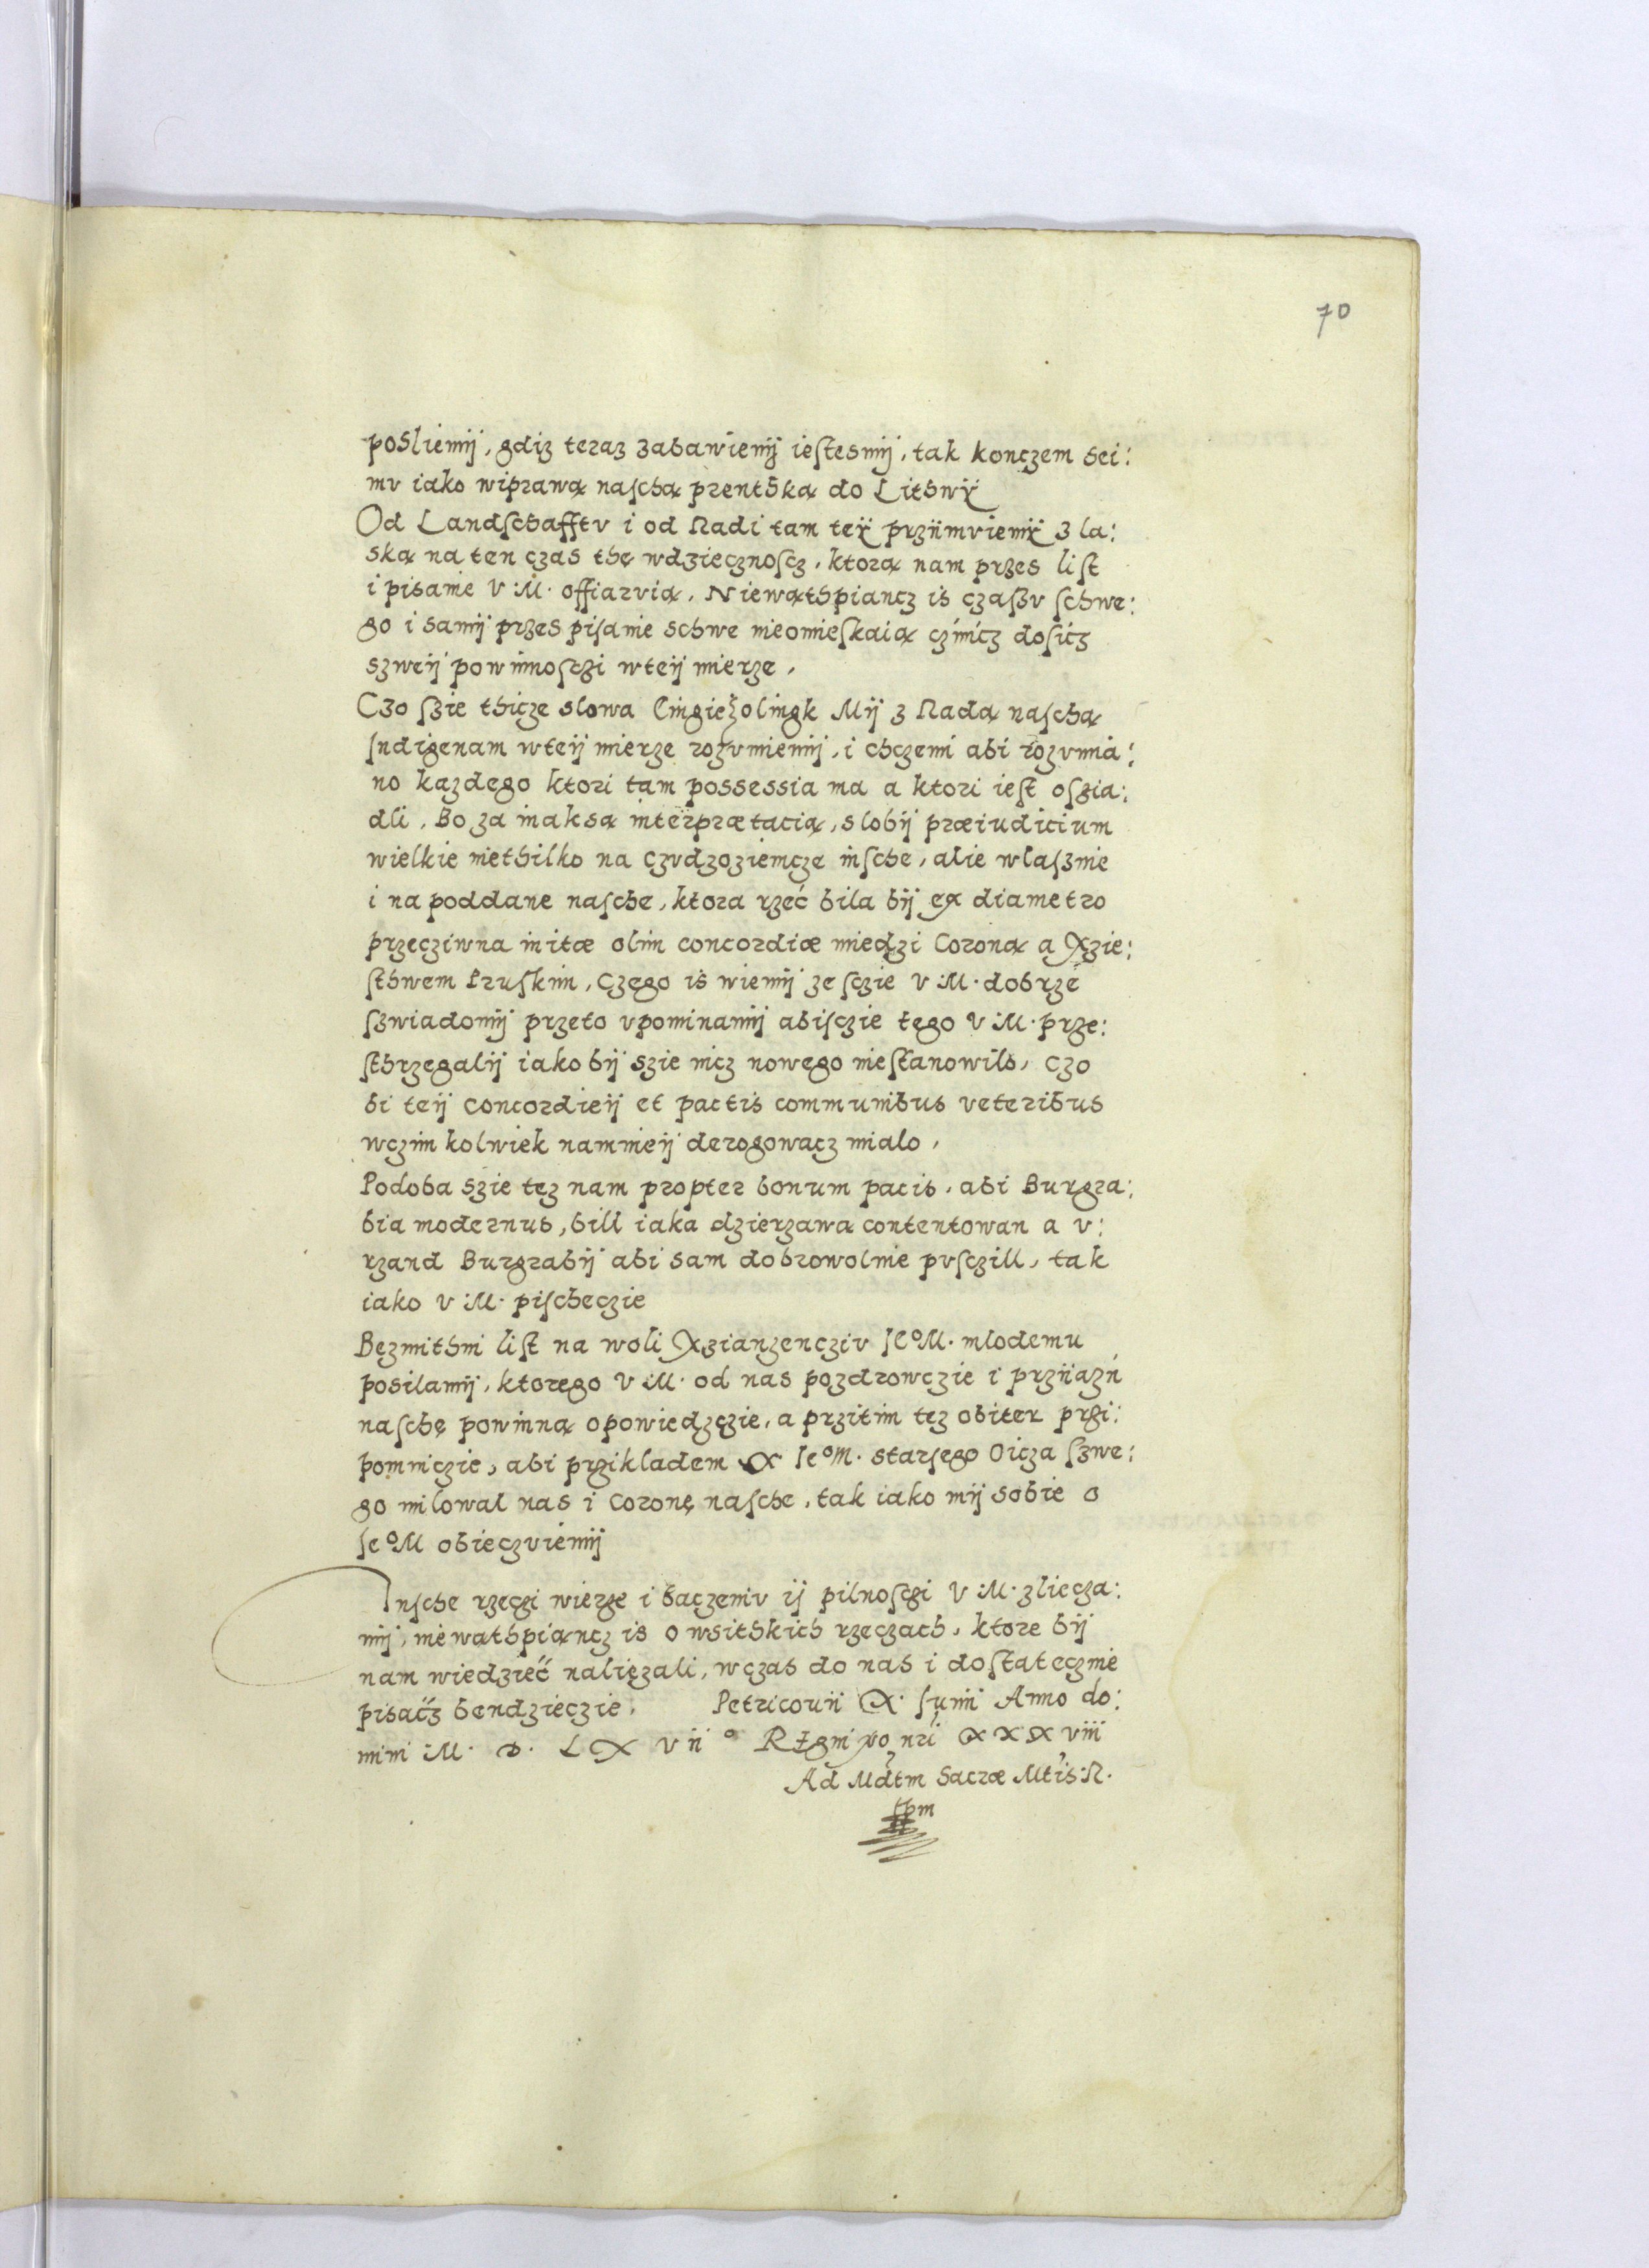 70
posliemÿ, gdiz teraz zabawienÿ iestesmÿ, tak konczem sei:
mv iako wiprawą naschą prentską do Lithwÿ
Od Landschafftv i od Radi tam teÿ przÿmviemÿ z la:
ską na ten czas thę wdziecznoscz, ktorą nam przes list
i pisanie V M. offiarvią, Niewąthpiancz is czaszv schwe:
go i samÿ przes pisanie schwe nieomieskaią czinicz dosicz
szweÿ powinnosczi wteÿ mierze,
Czo szie thicze slowa Cingieżolingk Mÿ z Radą naschą
Indigenam wteÿ mierze rozvmiemÿ, i chczemi abi rozvmia:
no kazdego ktori tam possessia ma a ktori iest oszia:
dli, Bo za inaksą interprætacią, slobÿ præiudicium
wielkie niethilko na czvdzoziemcze insche, alie wlasznie
i na poddane nasche, ktora rzeć bila bÿ ex diametro
przecziwna initæ olim concordiæ miedzi Coroną a Xzie:
sthwem Pruskim, Czego is wiemÿ ze sczie V M. dobrze
szwiadomÿ przeto vpominamÿ abisczie tego V M. prze:
sthrzegalÿ iako bÿ szie nicz nowego niestanowilo, Czo
bi teÿ Concordieÿ et pactis communibus veteribus
wczim kolwiek namnieÿ derogowacz mialo,
Podoba szie tez nam propter bonum pacis, abi Burgra:
bia modernus, bill iaka dzierzawa contentowan a v:
rzand Burgrabÿ abi sam dobrowolnie pvsczill, tak
iako V M. pischeczie
Bezmithni list na woli Xzianzencziv Ieº M. mlodemu
posilamÿ, ktorego V M. od nas pozdrowczie i przÿazń
naschę powinną opowiedzczie, a przitim tez obiter przi:
pomniczie, abi przikladem X Ieº M. starsego Oicza szwe:
go milowal nas i Coronę nasche, tak iako mÿ sobie o
Ieº M obieczviemÿ
Insche rzeczi wierze i baczeniv ÿ pilnosczi V M. zliecza:
mÿ, niewathpiancz is o wsithkich rzeczach, ktore bÿ
nam wiedzieć naliezali, wczas do nas i dostatecznie
pisacz bendzieczie. Petricouii X. Iunii Anno do:
mini M. D. LX vii º Regni vo nri XXX viii
Ad Mdtm Sacræ Mtis R.